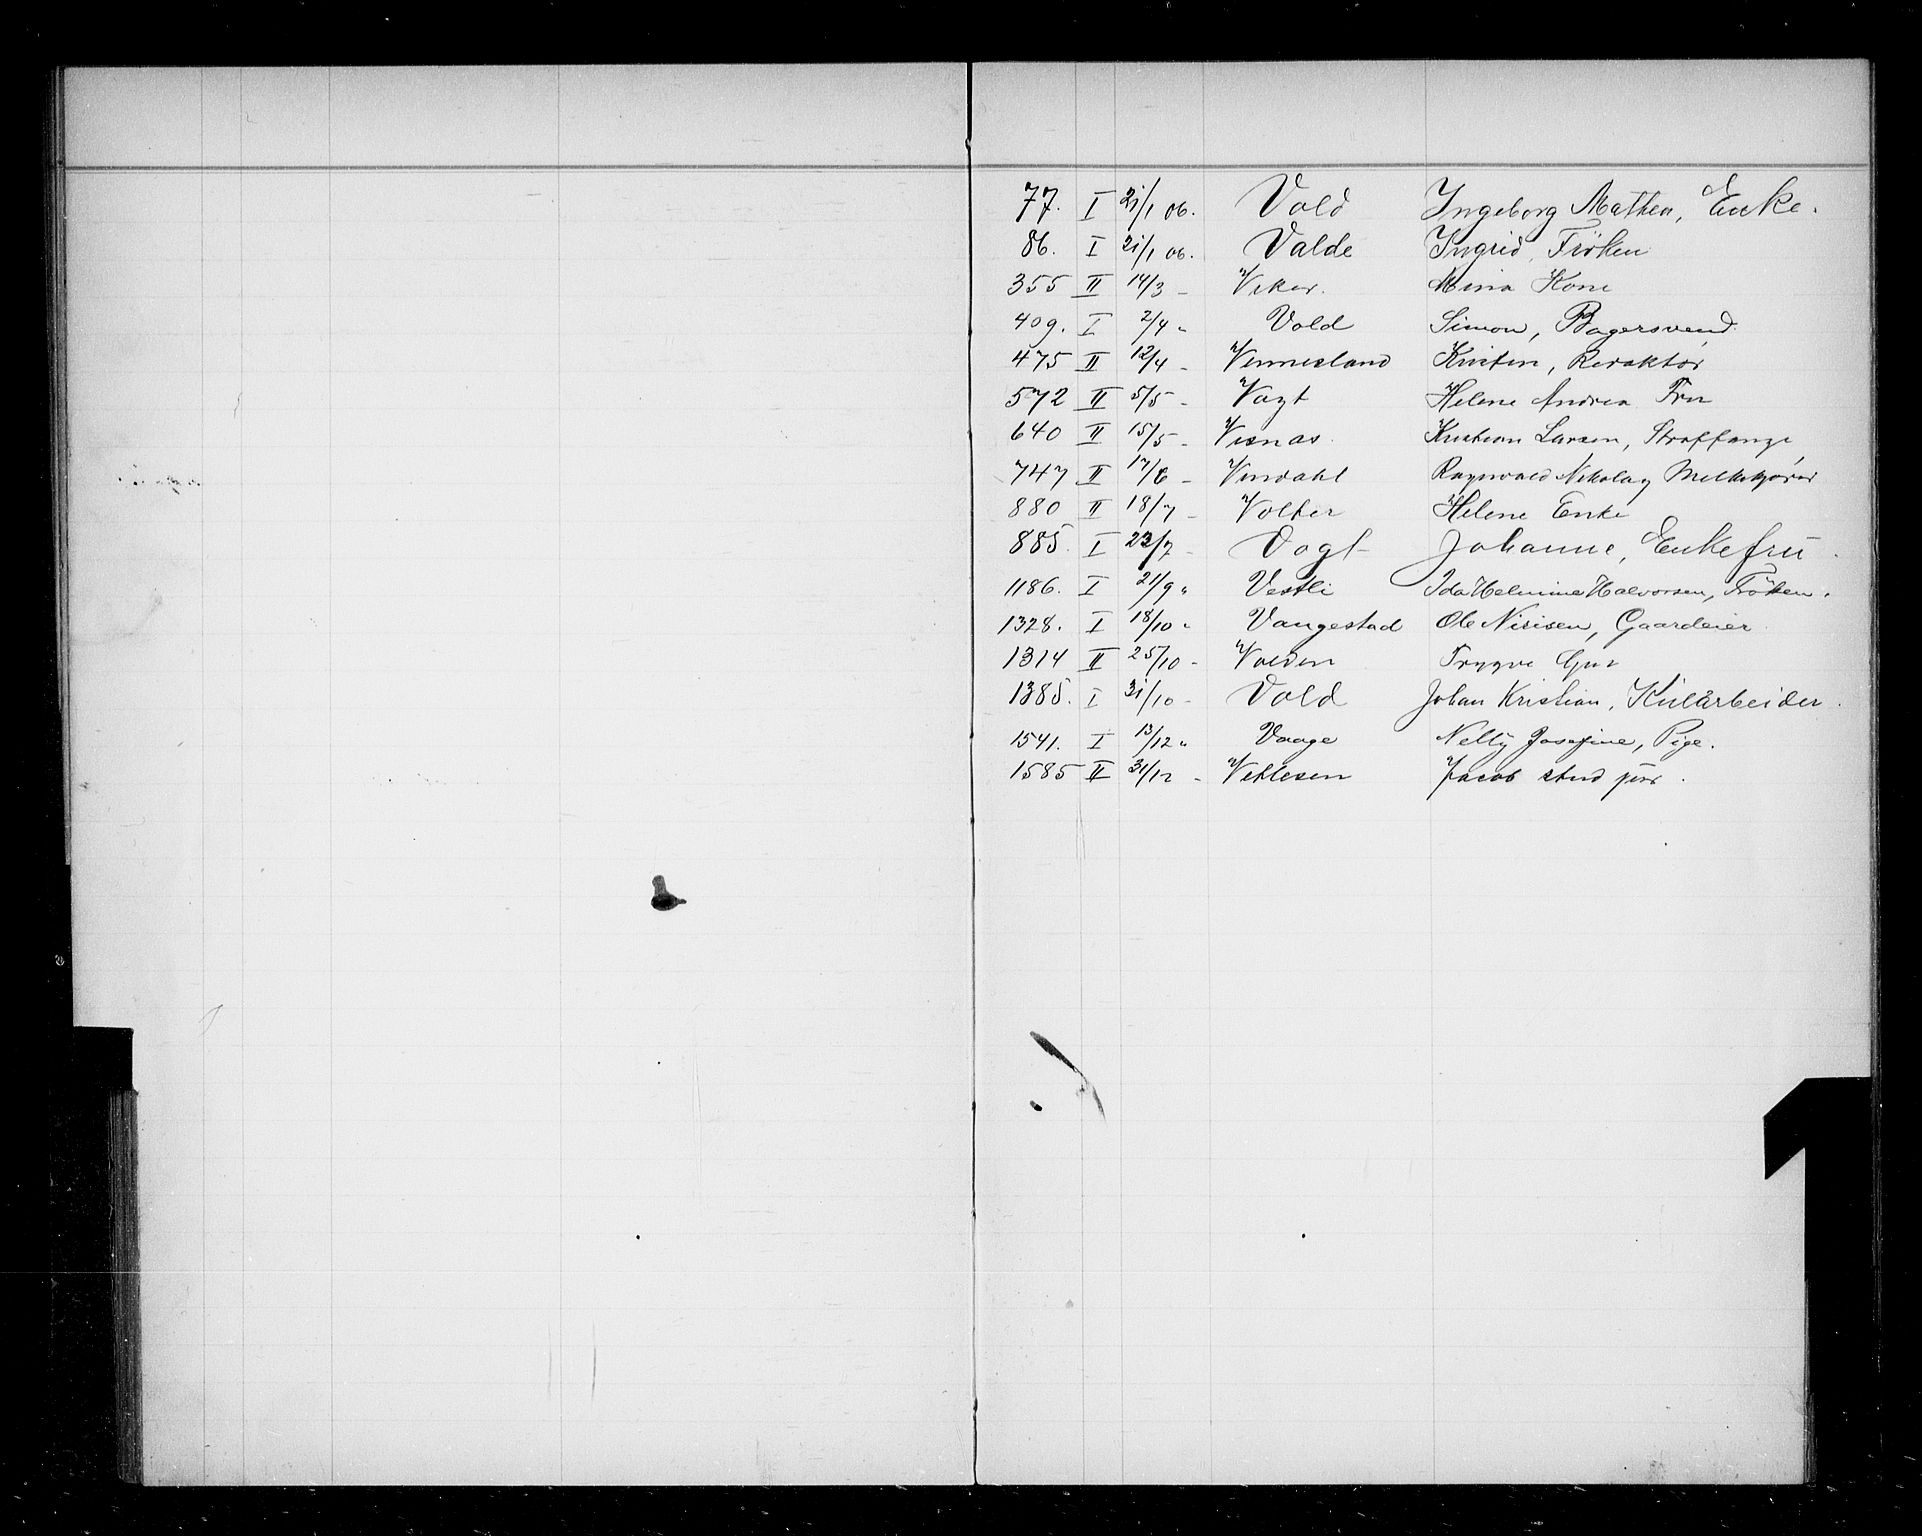 77. I 21/1 06. Vold Ingeborg Mathea, Enke.
86. I 21/1 06. Valde Ingrid, Frøken
355 II 14/3 - Viker. Mina Kone
409. I 2/4 " Vold Simon, Bagersvend.
475 II 12/4 - Vennesland Kristen, Redaktør
572 II 5/5 - Vogt Helene Andrea Fru
640 II 15/5 - Visnæs. Kristian Larsen, Straffange
747 II 17/6 - Vindahl Ragnvald Nikolay Melkekjører
880 II 18/7 - Volter Helene Enke
885. I 23/7 - Vogt Johanne, Enkefru.
1186. I 21/9 " Vestli Ida Helmine Halvorsen, Frøken.
1328. I 18/10 " Vangestad Ole Nirisen, Gaardeier.
1314 II 25/10 - Volden Trygve
1385. I 31/10 - Vold Johan Kristian, Kularbeider.
1541. I 13/12 " Vaage Nelly Josefine, Pige.
1585 II 31/12 - Vetlesen Jacob stud jur.